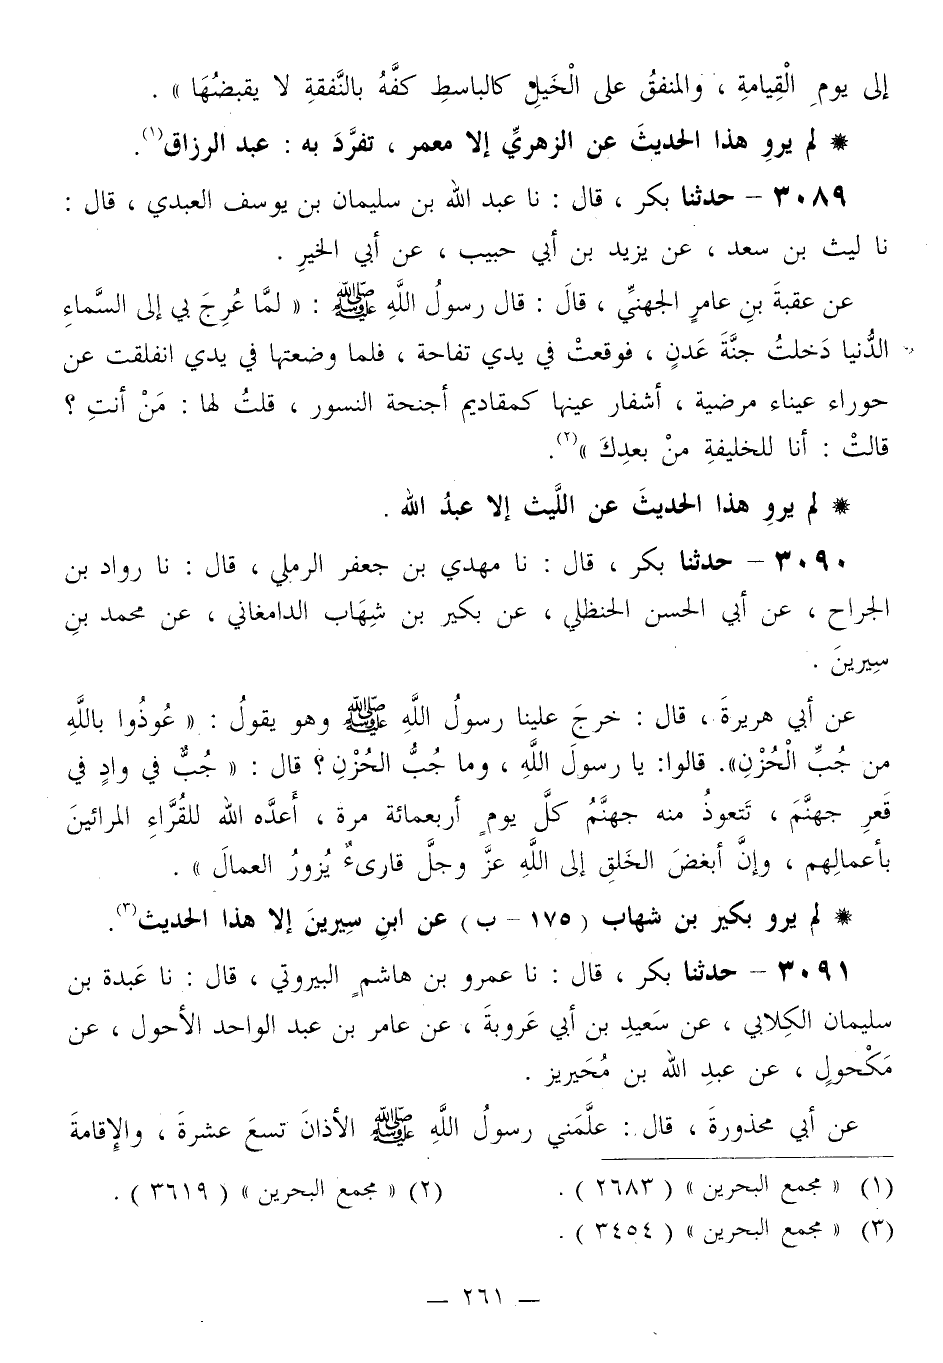 إلى يومِ الْقِيامةِ ، والمنفقُ على الْخَيلِ كالباسطِ كفَّهُ بالنَّفقةِ لا يقبضُهَا » .
* لم يروِ هذا الحديثَ عن الزهريِّ إلا معمر ، تفرَّدَ به : عبد الرزاق(١).
٣٠٨٩ – حدثنا بكر ، قال : نا عبد الله بن سليمان بن يوسف العبدي ، قال :
نا ليث بن سعد ، عن يزيد بن أبي حبيب ، عن أبي الخيرِ .
عن عقبةَ بنِ عامرٍ الجهنيِّ ، قالَ : قال رسولُ اللَّهِ ﷺ : « لمَّا عُرِجَ بي إلى السَّماءِ
الدُّنيا دَخلتُ جنَّةَ عَدنٍ ، فوقعتْ في يدي تفاحة ، فلما وضعتها في يدي انفلقت عن
حوراء عيناء مرضية ، أشفار عينها كمقاديم أجنحة النسور ، قلتُ لها : مَنْ أنتِ ؟
قالتْ : أنا للخليفةِ منْ بعدِكَ »(٢).
* لم يروِ هذا الحديثَ عن اللَّيث إلا عبدُ الله .
٣٠٩٠ – حدثنا بكر ، قال : نا مهدي بن جعفر الرملي ، قال : نا رواد بن
الجراح ، عن أبي الحسن الحنظلي ، عن بكير بن شِهَاب الدامغاني ، عن محمد بنِ
سِيرينَ .
عن أبي هريرةَ ، قال : خرجَ علينا رسولُ اللَّهِ ﷺ وهو يقولُ : « عُوذُوا باللَّهِ
من جُبِّ الْحُزْنِ». قالوا: يا رسولَ اللَّهِ ، وما جُبُّ الحُزْنِ ؟ قال : « جُبٌّ في وادٍ في
قَعرِ جهنَّمَ ، تَتعوذُ منه جهنَّمُ كلَّ يومٍ أربعمائة مرة ، أَعدَّه الله للقُرَّاءِ المرائينَ
بأعمالِهم ، وإنَّ أبغضَ الخَلقِ إلى اللَّهِ عزَّ وجلَّ قارىءٌ يُزورُ العمالَ » .
* لم يرو بكير بن شهاب ( ١٧٥ – ب ) عن ابنِ سِيرينَ إلا هذا الحديث(٣).
٣٠٩١ – حدثنا بكر ، قال : نا عمرو بن هاشمٍ البيروتي ، قال : نا عَبدة بن
سليمان الكِلابي ، عن سَعيدِ بن أبي عَروبةَ ، عن عامر بن عبد الواحد الأحول ، عن
مَكْحولٍ ، عن عبدِ الله بن مُحَيريز .
عن أبي محذورةَ ، قال : علَّمَني رسولُ اللَّهِ ﷺ الأذانَ تسعَ عشرةَ ، والإِقامةَ
(١) « مجمع البحرين » ( ٢٦٨٣ ) . (٢) « مجمع البحرين » ( ٣٦١٩ ) .
(٣) « مجمع البحرين » ( ٣٤٥٤ ) .
– ٢٦١ –